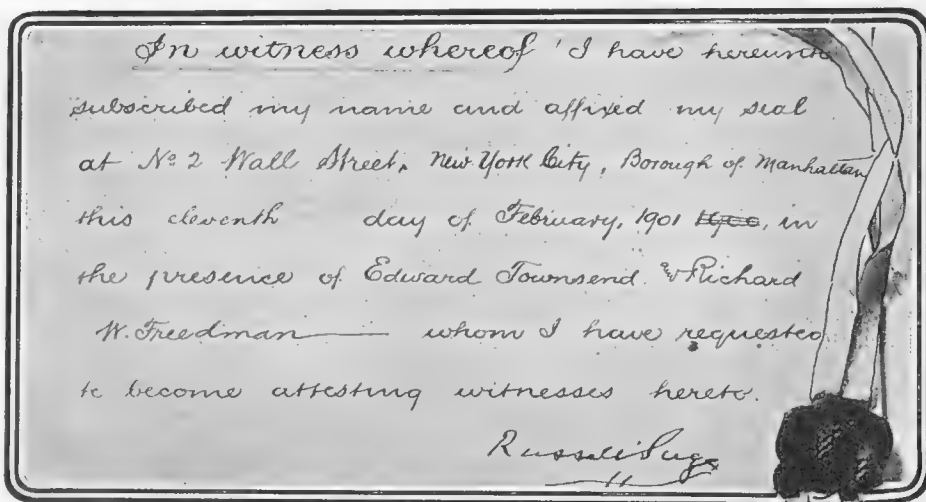 In witness whereof I have hereunto
subscribed my name and affixed my seal
at No 2 Wall Street, New York City, Borough of Manhattan
this eleventh day of February, 1901 1900, in
the presence of Edward Townsend & Richard
W. Freedman whom I have requested
to become attesting witnesses hereto.
Russell Sage